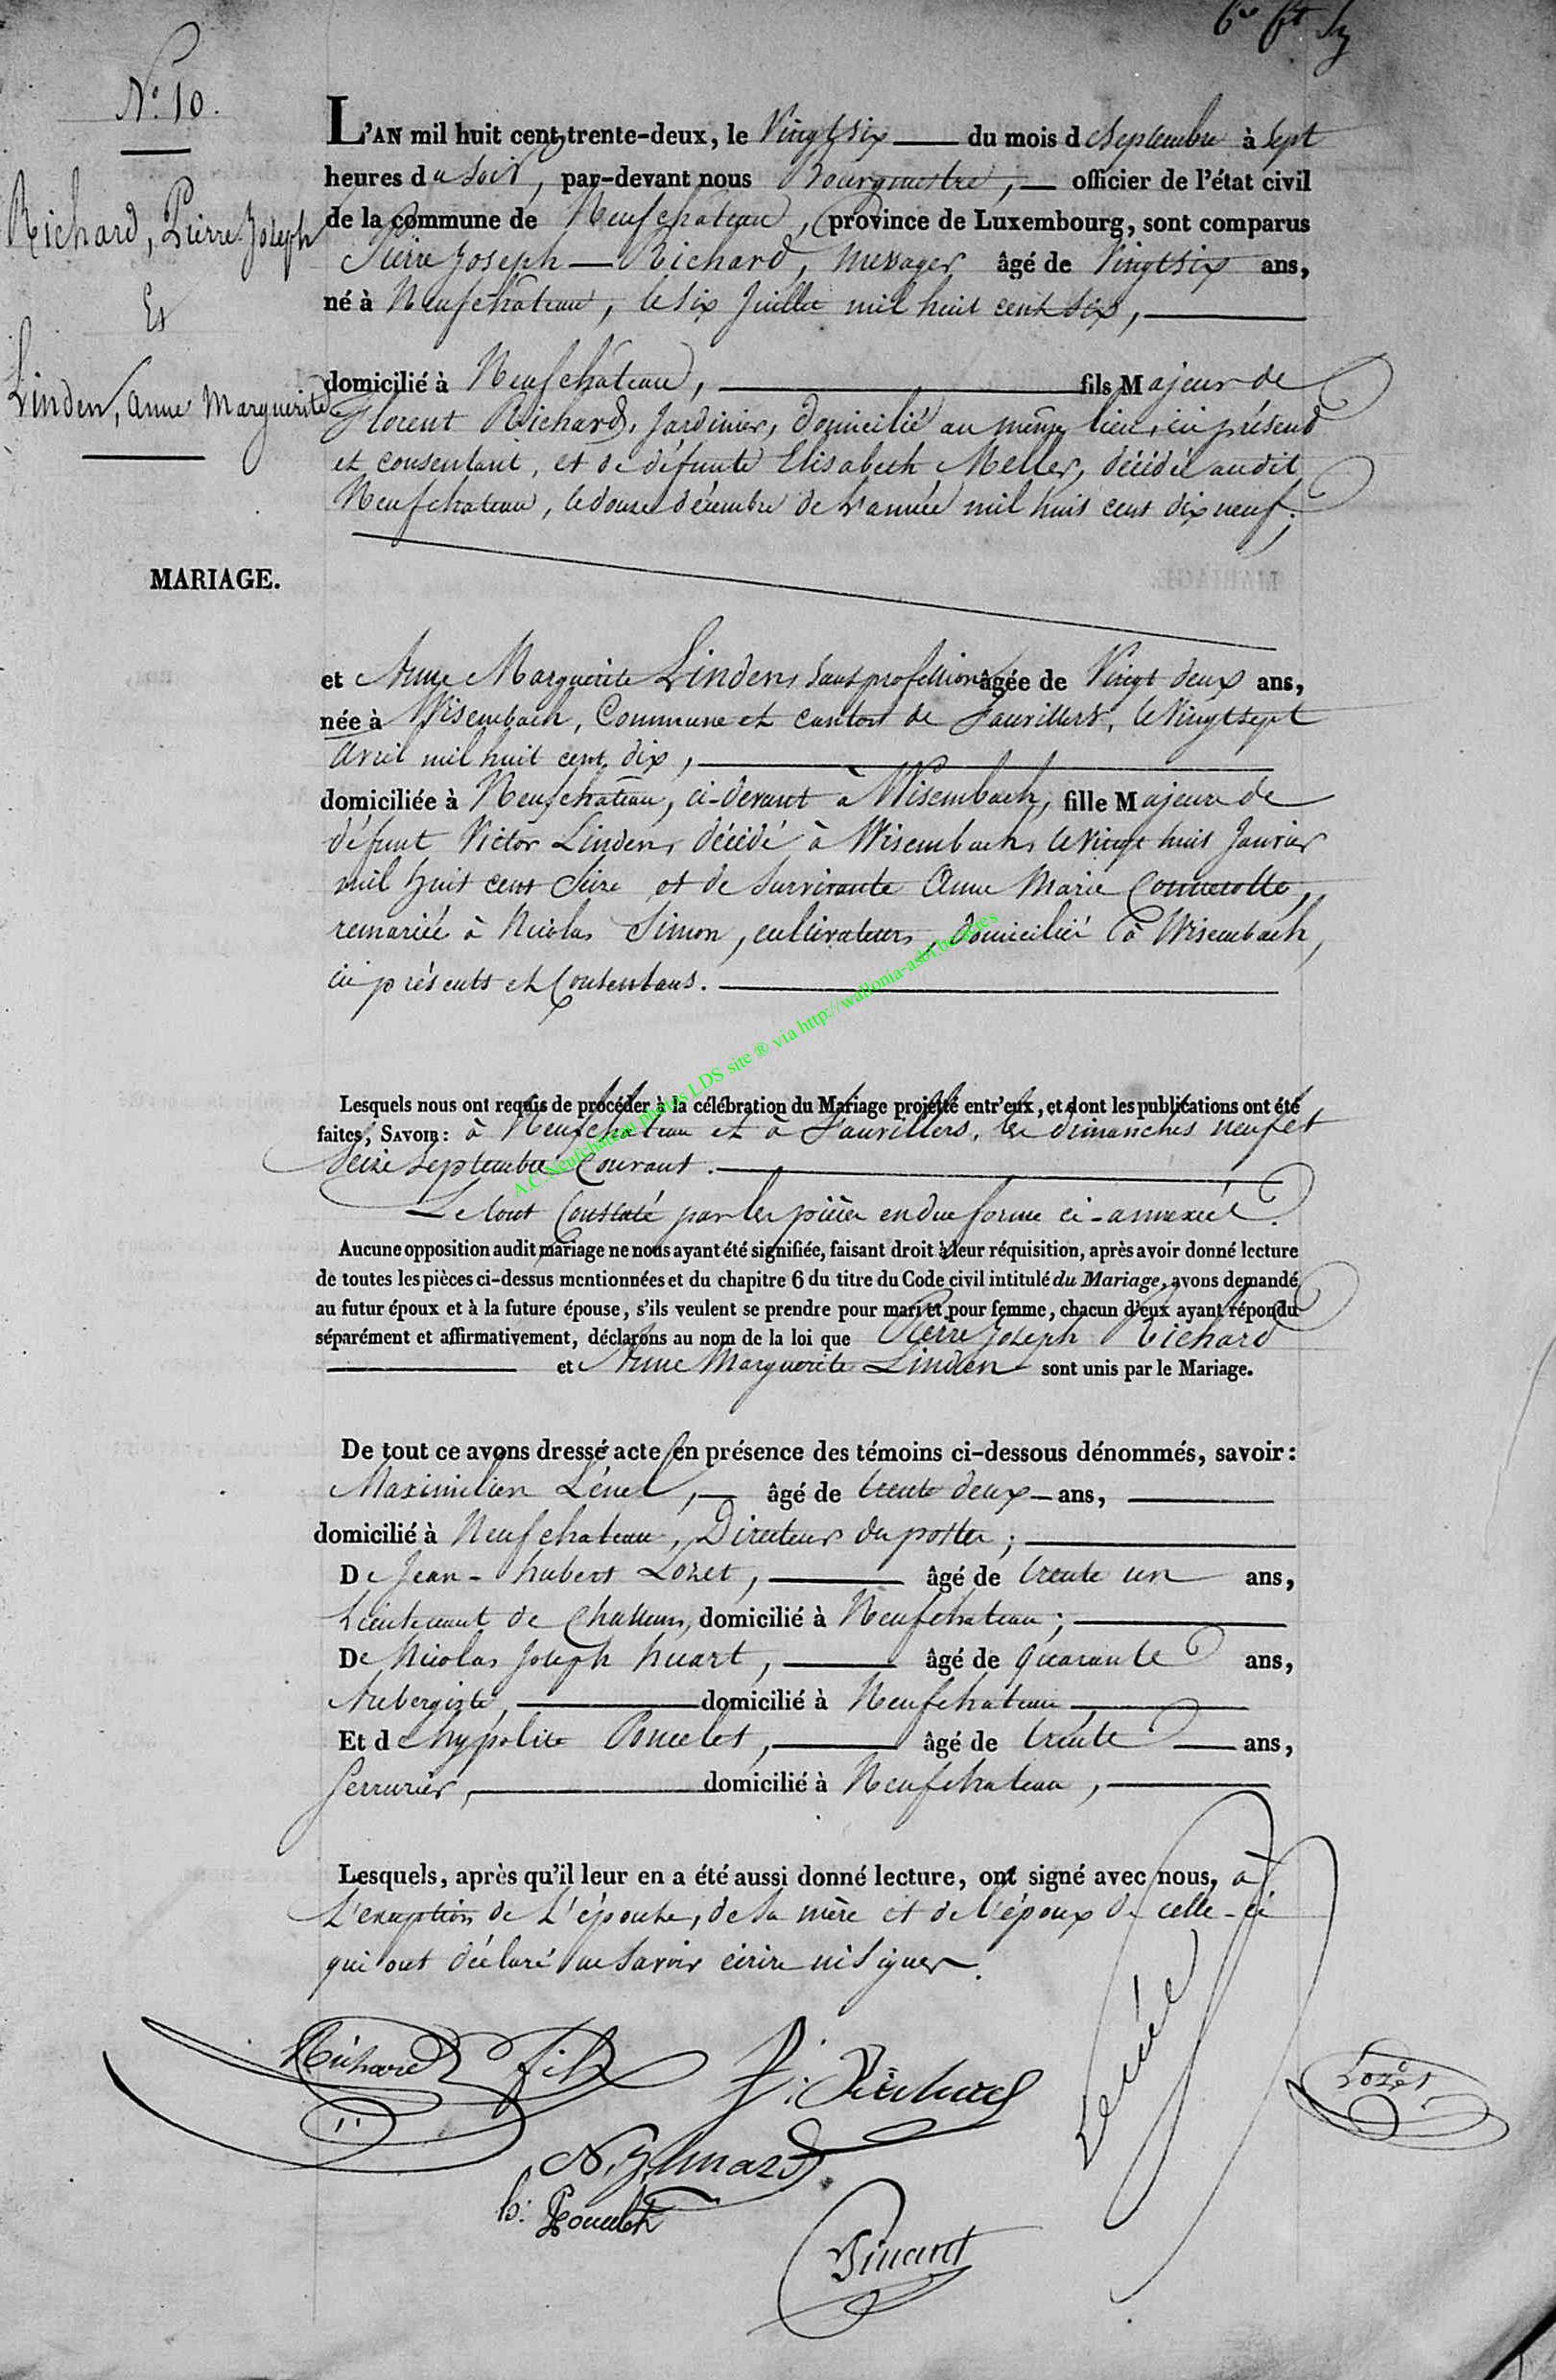 N.° 10.
Richard, Pierre Joseph
Et
Linden, Anne Marguerite
MARIAGE.
L'AN mil huit cent trente-deux, le Vingt six du mois de Septembre à Sept
heures du Soir, par-devant nous Bourgmestre, officier de l'état civil
de la commune de Neufchateau, province de Luxembourg, sont comparus
Pierre Joseph Richard, Messager âgé de Vingt six ans,
né à Neufchâteau, le six Juillet mil huit cent six,
domicilié à Neufchâteau, fils Majeur de
Florent Richard, Jardinier, domicilié au même lieu, ici présent
et consentant, et de défunte Elisabeth Meller, décédée audit
Neufchateau, le douze décembre de l'année mil huit cent dix neuf;
et Anne Marguerite Linden, Sans profession âgée de Vingt deux ans,
née à Wisembach, Commune et canton de Fauvillers, le Vingt sept
Avril mil huit cent dix,
domiciliée à Neufchâteau, ci-devant à Wisembach, fille Majeure de
défunt Victor Linden, décédé à Wisembach, le Vingt huit Janvier
mil huit cent Seize et de Survivante Anne Marie
remariée à Nicolas Simon, cultivateurs, domicilié à Wisembach,
ici présents et Consentans.
Lesquels nous ont requis de procéder à la célébration du Mariage projetté entr'eux, et dont les publications ont été
faites, SAVOIR: à Neufchateau et à Fauvillers, les dimanches neuf et
Seize Septembre Courant.
Le tout Constaté par les pièces en due forme ci-annexées.
Aucune opposition audit mariage ne nous ayant été signifiée, faisant droit à leur réquisition, après avoir donné lecture
de toutes les pièces ci-dessus mentionnées et du chapitre 6 du titre du Code civil intitulé du Mariage, avons demandé
au futur époux et à la future épouse, s'ils veulent se prendre pour mari et pour femme, chacun d'eux ayant répondu
séparément et affirmativement, déclarons au nom de la loi que Pierre Joseph Richard
et Anne Marguerite Linden sont unis par le Mariage.
De tout ce avons dressé acte en présence des témoins ci-dessous dénommés, savoir:
Maximilien âgé de trente deux ans,
domicilié à Neufchateau, Directeur des postes;
De Jean-hubert Lozet, âgé de trente un ans,
Lieutenant de Chasseurs, domicilié à Neufchateau;
De Nicolas Joseph huart, âgé de quarante ans,
Aubergiste, domicilié à Neufchateau
Et de hypolite Poncelet, âgé de trente ans,
Serrurier, domicilié à Neufchateau,
Lesquels, après qu'il leur en a été aussi donné lecture, ont signé avec nous, à
L'exception de L'épouse, de Sa mère et de l'époux de celle-ci
qui ont déclaré ne Savoir écrire ni Signer.
Richard fils
f: Richard
Lozet
N. J. huart
h: Poncelet
A.C. Neufchâteau photos LDS site ® via http://wallonia-asbl.be/actes